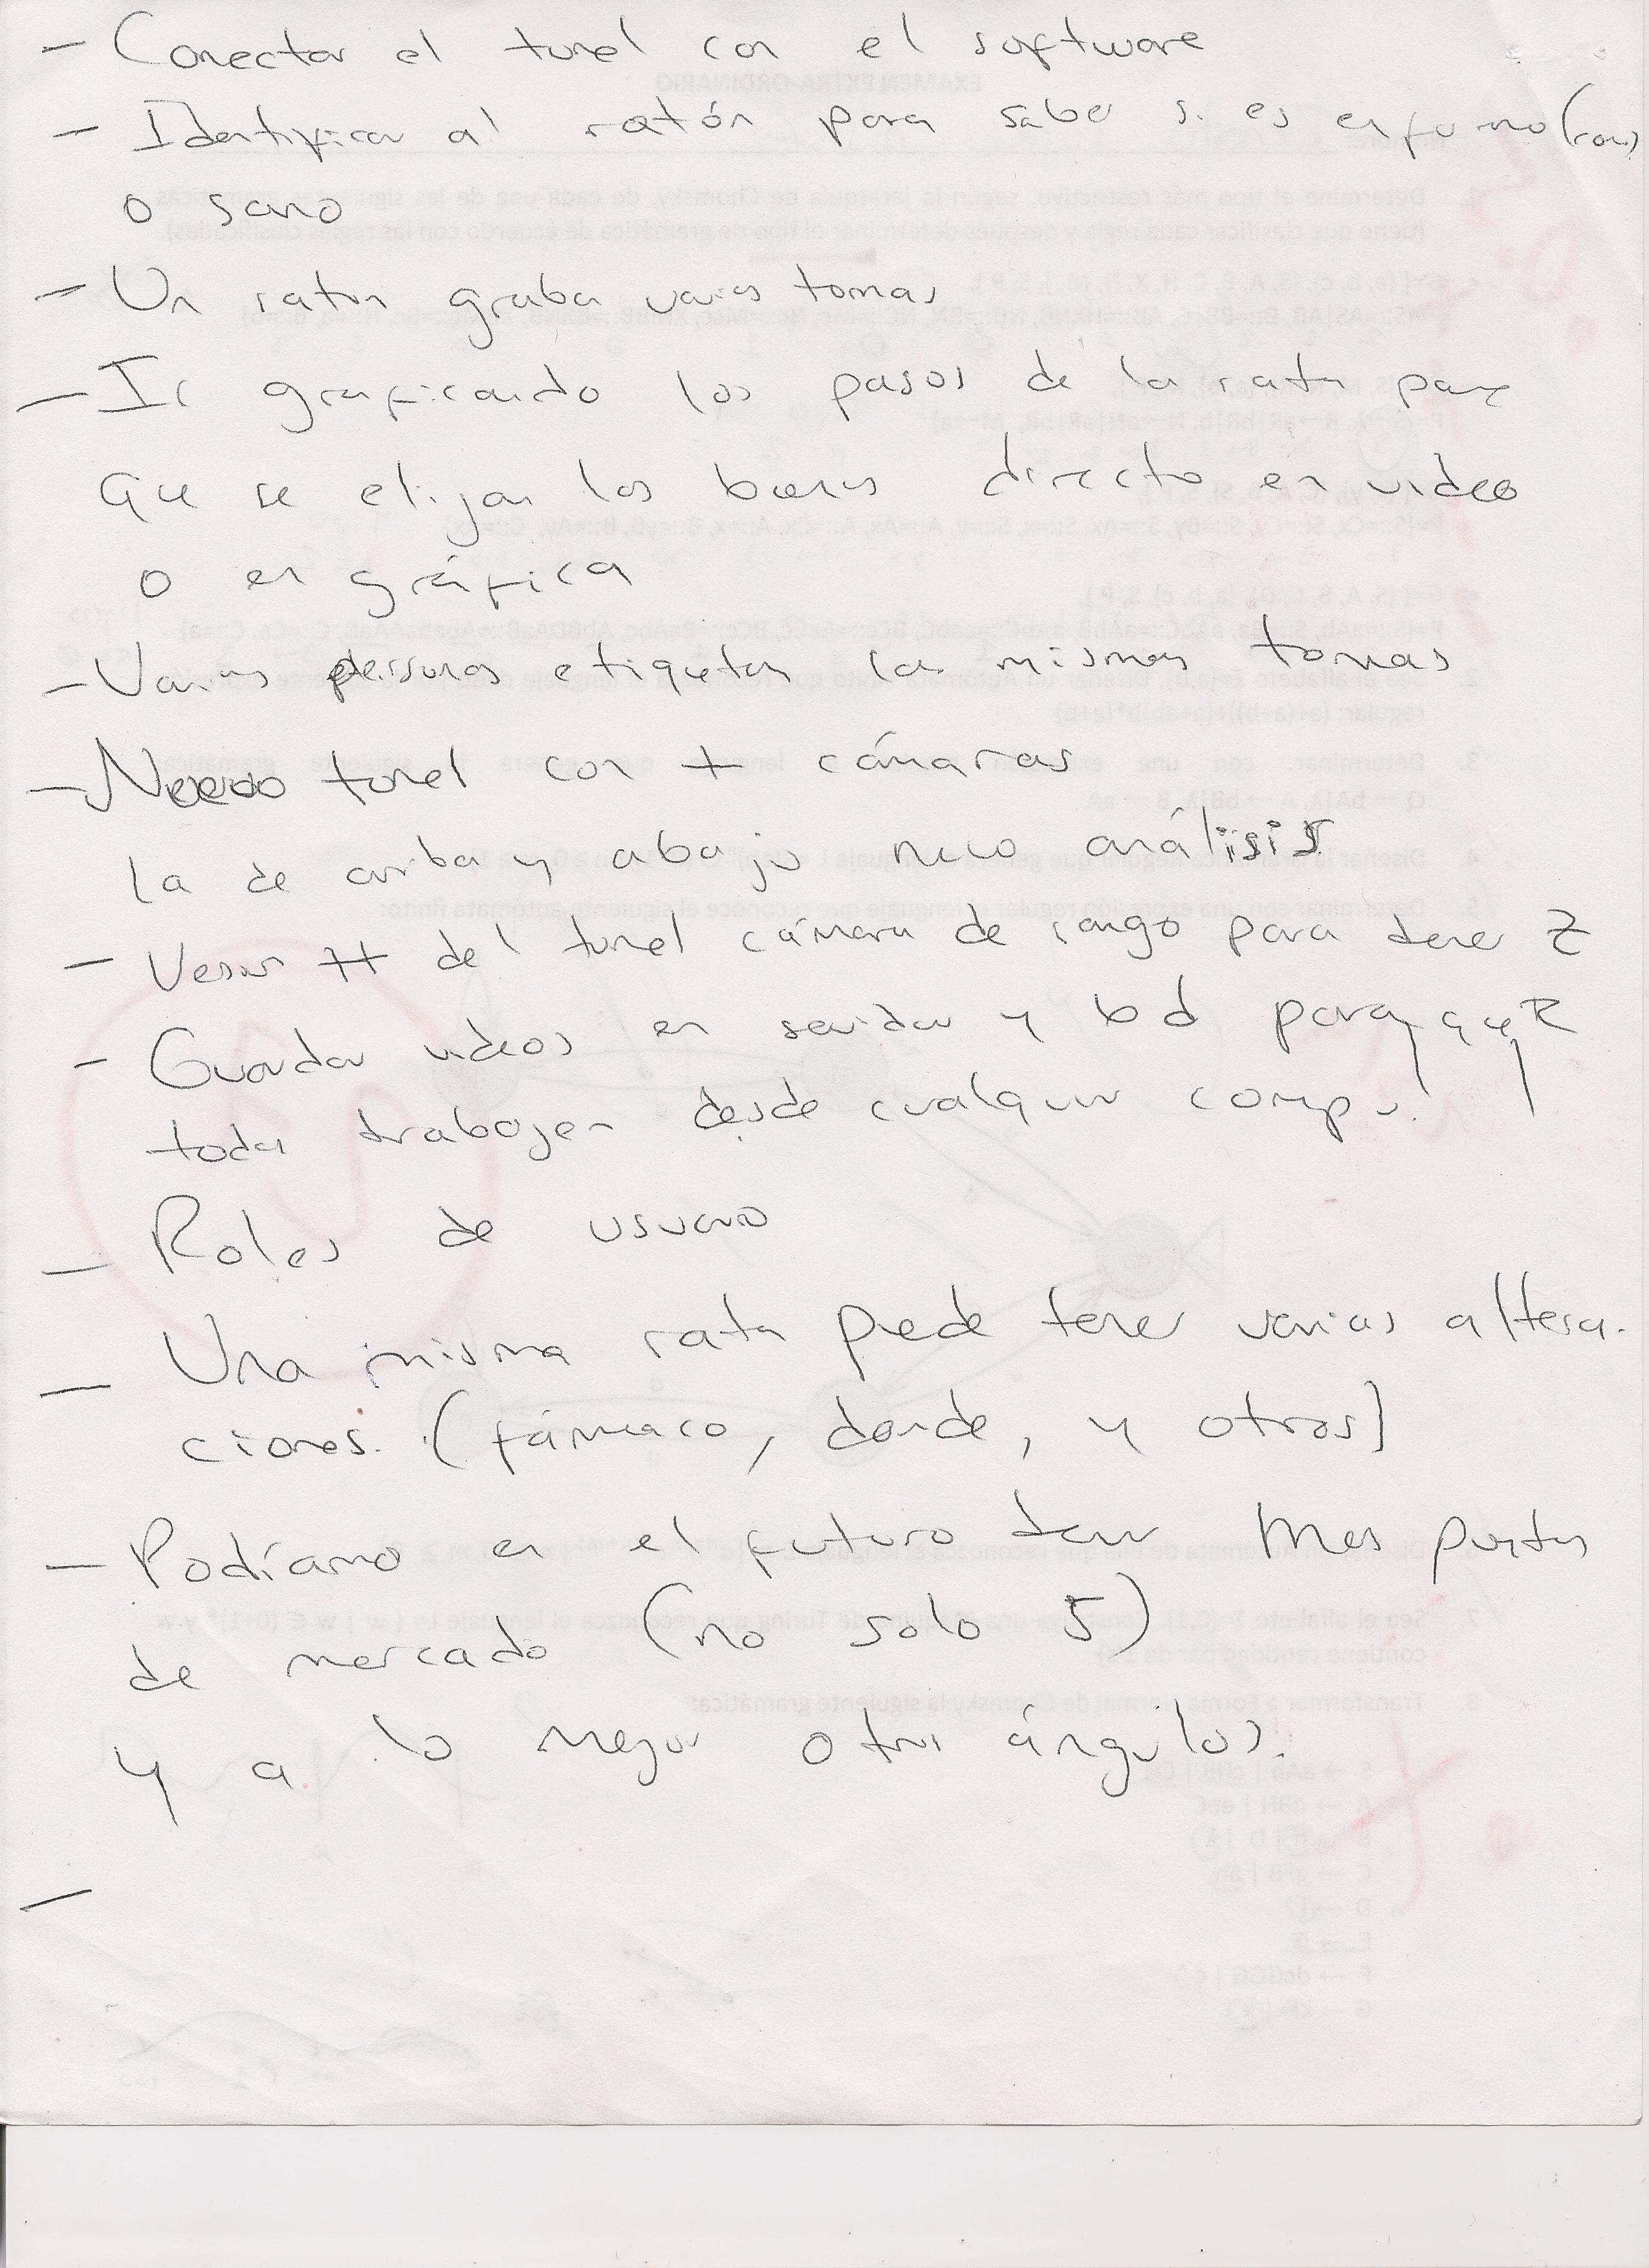 - Conectar el tunel con el software
- Identificar al ratón para saber si es enfermo
o sano
- Un raton graba varias tomas
- Ir graficando los pasos de la rata para
que se elijan los buenos directo en video
o en gráfica
- Varias personas etiquetan las mismas tomas
- Nuevo tunel con + cámaras
la de arriba y abajo nuevo análisis
- del tunel cámara de rango para tener Z
- Guardar videos en servidor y bd para que
todos trabajen desde cualquier compu!
- Roles de usuario
- Una misma rata puede tener varias altera-
ciones. (fármaco, donde, y otros)
- Podíamo en el futuro tener mas puntos
de mercado (no solo 5)
y a lo mejor otros ángulos.
-